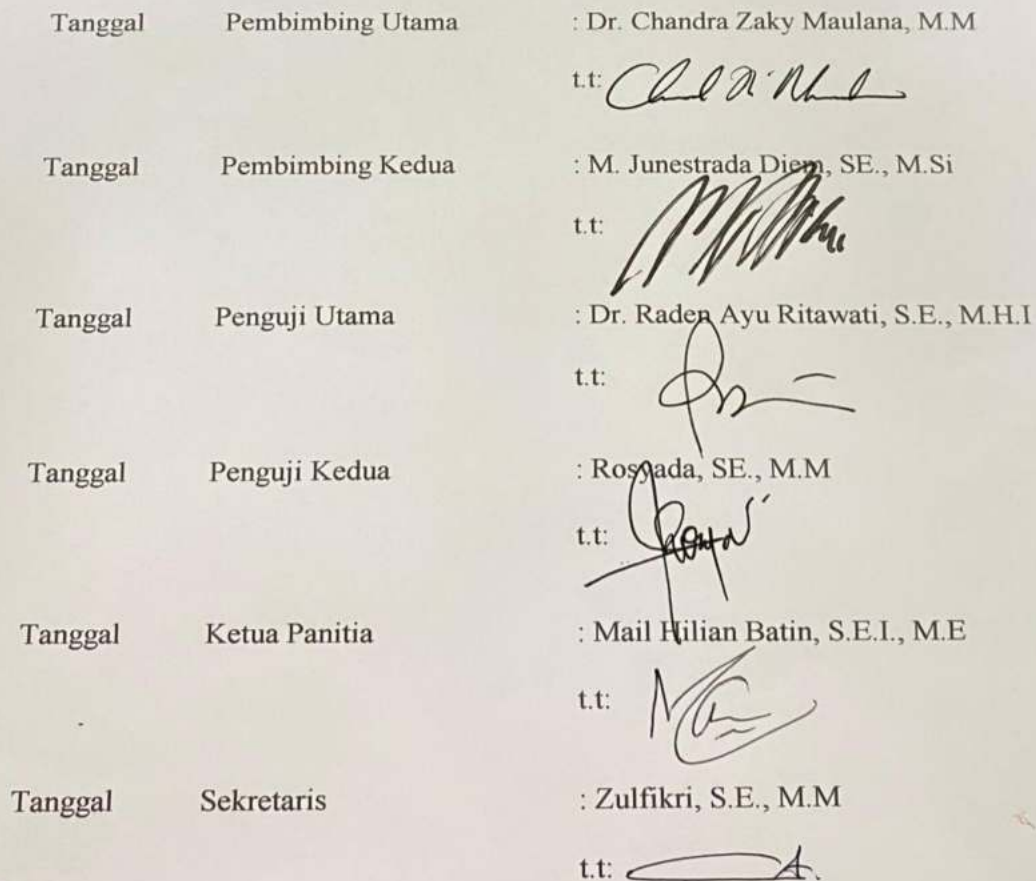 Tanggal Pembimbing Utama : Dr. Chandra Zaky Maulana, M.M
t.t:
Tanggal Pembimbing Kedua : M. Junestrada Diem, SE., M.Si
t.t:
Tanggal Penguji Utama : Dr. Raden Ayu Ritawati, S.E., M.H.I
t.t:
Tanggal Penguji Kedua : Rosyada, SE., M.M
t.t:
Tanggal Ketua Panitia : Mail Hilian Batin, S.E.I., M.E
t.t:
Tanggal Sekretaris : Zulfikri, S.E., M.M
t.t: